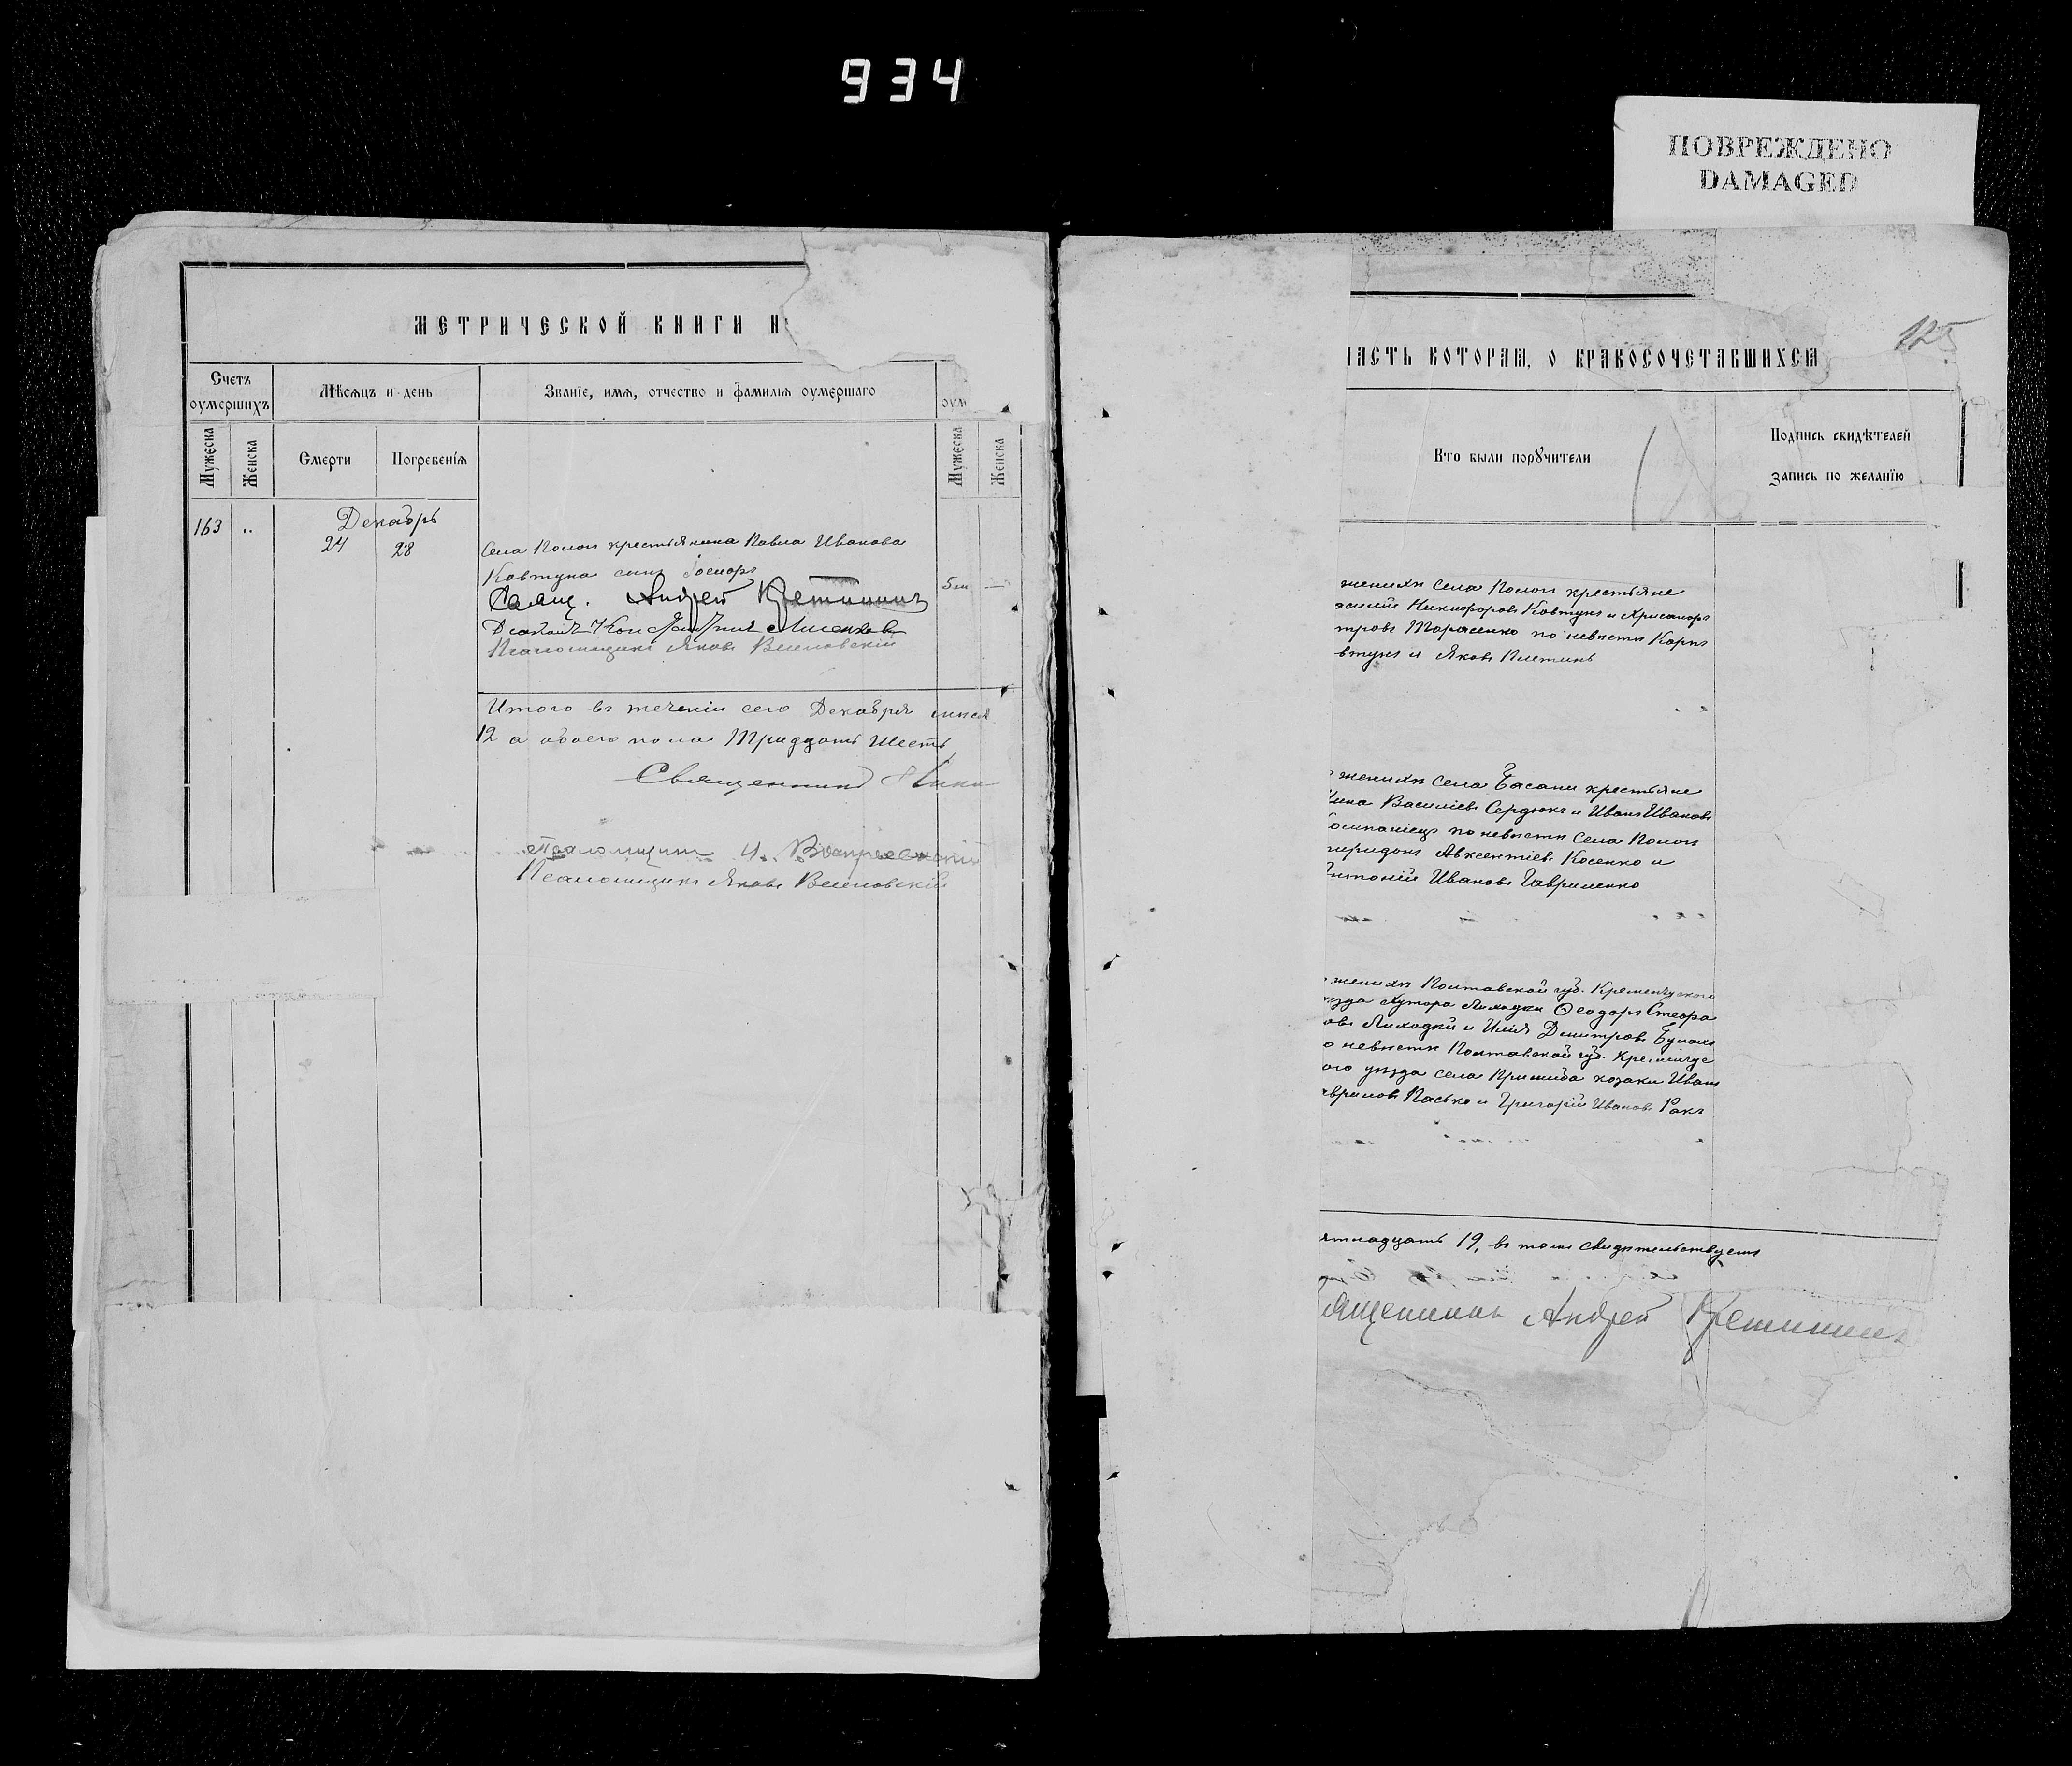 934
ПОВРЕЖДЕНО
DAMAGED
МЕТРИЧЕСКОЙ КНИГИ Н
Счетъ оумершихъ
Мѣсяцъ и день
Званїе, имя, отчество и фамилїя оумершаго
оум
Мужеска
Женска
Смерти
Погребенїя
Мужеска
Женска
163
Декабрь
24
28
Села Попон крестьянина Павла Иванова
Ковтуна сынъ
5 м
Свящ. Андрей
Псаломщикъ Яковъ
Итого въ теченіи сего Декабря
12 а обоего пола Тридцать Шесть
Священникъ
Псаломщикъ И.
Псаломщикъ Яковъ
125
ЧАСТЬ ВТОРАЯ, О БРАКОСОЧЕТАВШИХСЯ
Кто были порꙋчители
Подпись свидѣтелей
запись по желанїю
женихѣ Села Попон крестьяне
Никифоровъ Ковтунъ и Хрисанфъ
тровъ Тарасенко по невѣстѣ Карпъ
втунъ и Яковъ Плетинь
женихѣ Села Басани крестьяне
Василіевъ Сердюкъ и Иванъ Ивановъ
омпаніецъ по невѣстѣ Села Попон
пиридонъ Авксентіевъ Косенко и
нтоній Ивановъ Гавриленко
женихѣ Полтавской губ. Кременчугского
ѣзда Хутора Лиходки Ѳеодоръ
овъ Лиходкій и Илія Димитровъ
о невѣстѣ Полтавской губ. Кременчус
ого уѣзда села козаки Иванъ
авриловъ Пасько и Григорій Ивановъ Ракъ
ятнадцать 19, въ томъ свидѣтельствуетъ
ященникъ Андрей